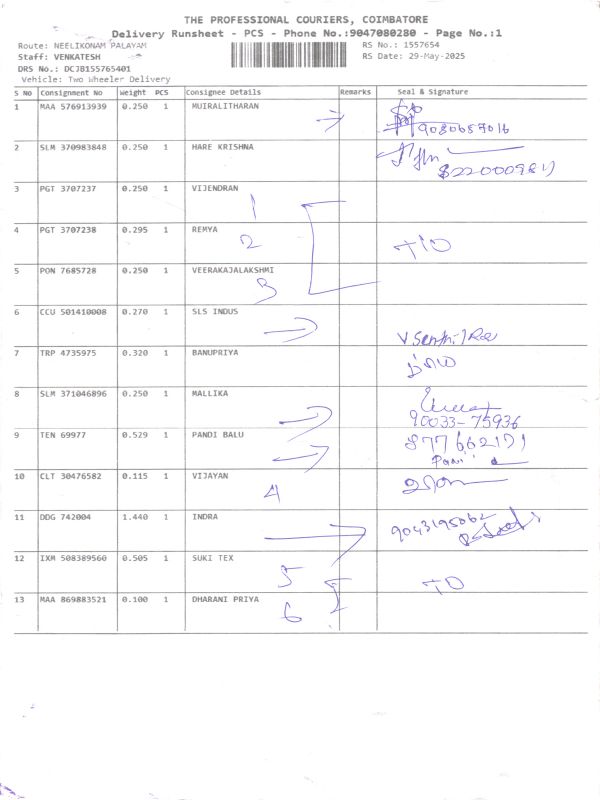 THE PROFESSIONAL COURIERS, COIMBATORE
Delivery Runsheet - PCS - Phone No.:9047080280 - Page No.:1
Route: NEELIKONAM PALAYAM RS No.: 1557654
Staff: VENKATESH RS Date: 29-May-2025
DRS No.: DCJB155765401
Vehicle: Two Wheeler Delivery
S NO Consignment No Weight PCS Consignee Details Remarks Seal & Signature
1 MAA 576913939 0.250 1 MUIRALITHARAN
2 SLM 370983848 0.250 1 HARE KRISHNA
3 PGT 3707237 0.250 1 VIJENDRAN
1
4 PGT 3707238 0.295 1 REMYA
2 T/D
5 PON 7685728 0.250 1 VEERAKAJALAKSHMI
3
6 CCU 501410008 0.270 1 SLS INDUS
7 TRP 4735975 0.320 1 BANUPRIYA
8 SLM 371046896 0.250 1 MALLIKA
90033-75936
9 TEN 69977 0.529 1 PANDI BALU
10 CLT 30476582 0.115 1 VIJAYAN
4
11 DDG 742004 1.440 1 INDRA
12 IXM 508389560 0.505 1 SUKI TEX
5 TD
13 MAA 869883521 0.100 1 DHARANI PRIYA
6